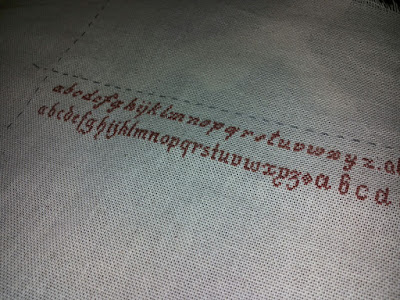 abcdefghijklmnopqrstuvwxyz.ab
abcdefghijklmnopqrstuvwxyz abcd